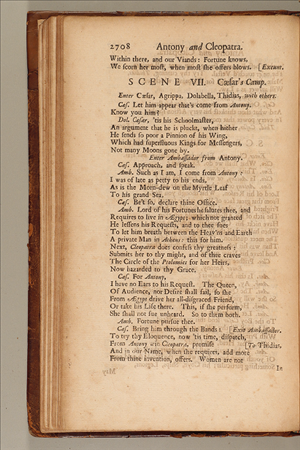 2708 Antony and Cleopatra.
Within there, and our Viands: Fortune knows.
We scorn her most, when most she offers blows. [Exeunt.
SCENE VII. Cæsar's Camp.
Enter Cæsar, Agrippa, Dolabella, Thidias, with others.
Cæs. Let him appear that's come from Antony.
Know you him?
Dol. Cæsar, 'tis his Schoolmaster,
An argument that he is pluckt, when hither
He sends so poor a Pinnion of his Wing,
Which had superfluous Kings for Messengers,
Not many Moons gone by.
Enter Ambassador from Antony.
Cæs. Approach, and speak.
Amb. Such as I am, I come from Antony:
I was of late as petty to his ends,
As is the Morn-dew on the Myrtle Leaf
To his grand Sea.
Cæs. Be't so, declare thine Office.
Amb. Lord of his Fortunes he salutes thee, and
Requires to live in Ægypt, which not granted
He lessens his Requests, and to thee sues
To let him breath between the Heav'ns and Earth
A private Man in Athens: this for him.
Next, Cleopatra does confess thy greatness;
Submits her to thy might, and of thee craves
The Circle of the Ptolomies for her Heirs,
Now hazarded to thy Grace.
Cæs. For Antony,
I have no Ears to his Request. The Queen,
Of Audience, nor Desire shall fail, so she
From Ægypt drive her all-disgraced Friend,
Or take his Life there. This, if she perform,
She shall not sue unheard. So to them both.
Amb. Fortune pursue thee.
Cæs. Bring him through the Bands: [Exit Ambassador.
To try thy Eloquence, now 'tis time, dispatch,
From Antony win Cleopatra, promise [To Thidias.
And in our Name, when she requires, add more
From thine invention, offers. Women are not
In